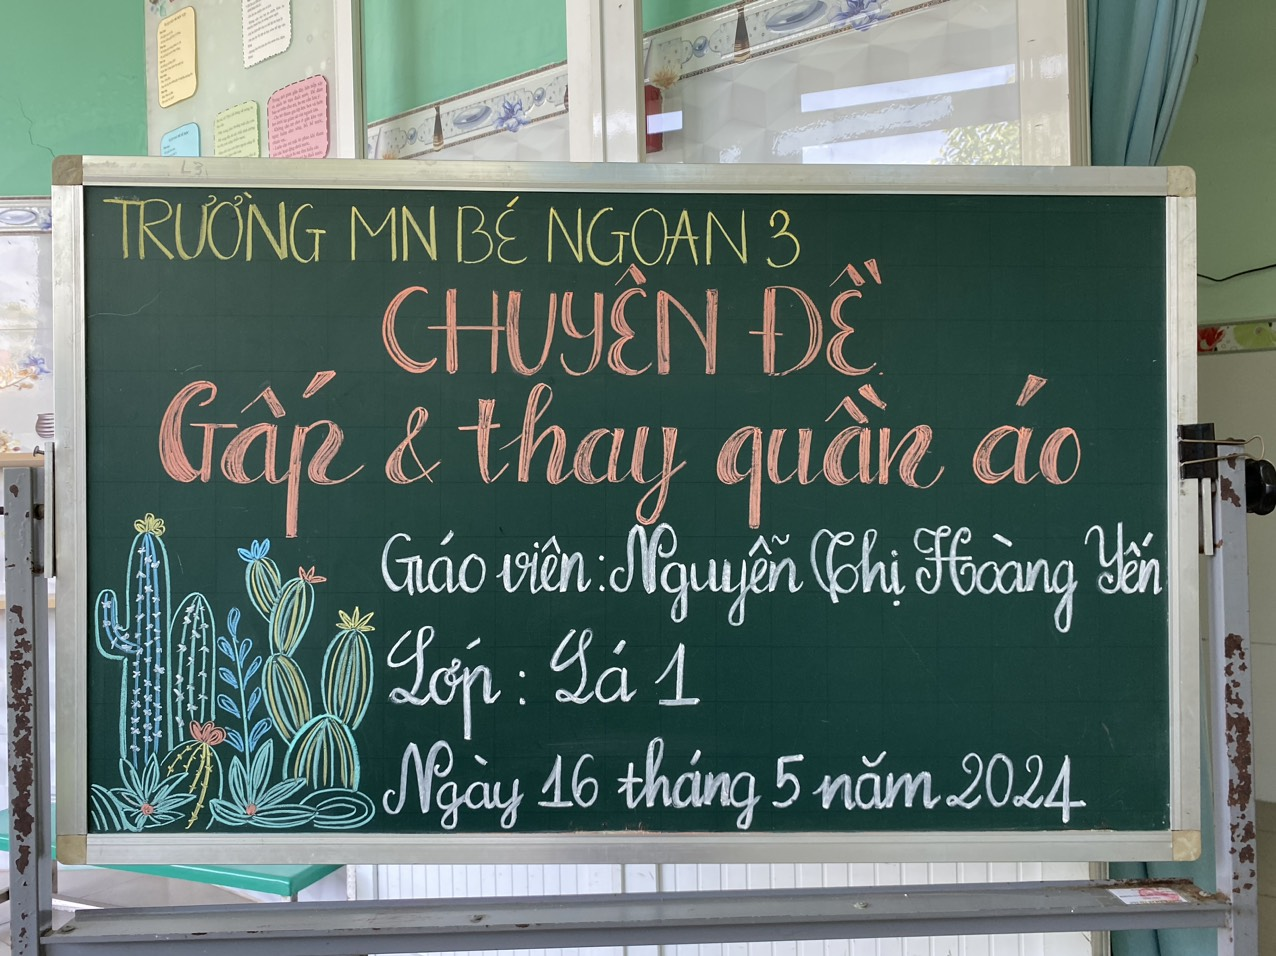 L3
TRƯỜNG MN BÉ NGOAN 3
CHUYÊN ĐỀ
Gấp & thay quần áo
Gáo viên: Nguyễn Thị Hoàng Yến
Lớp: Lá 1
Ngày 16 tháng 5 năm 2024